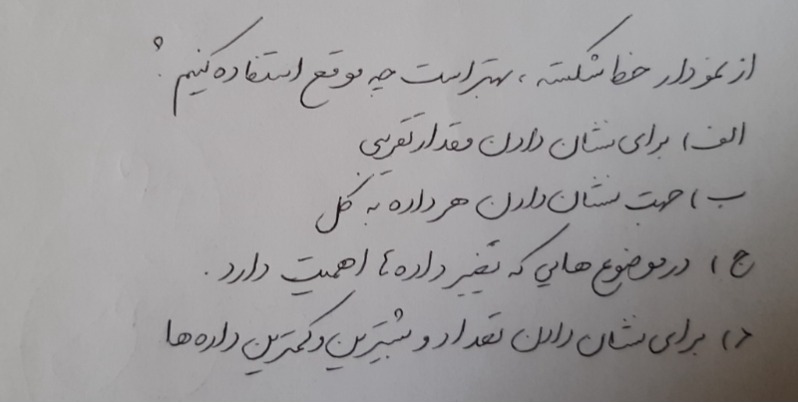 از نمودار خط شکسته ، بهتر است چه موقع استفاده کنیم ؟
الف) برای نشان دادن مقدار تقریبی
ب) جهت نشان دادن هر داده به کل
ج) در موضوع هایی که تغییر داده ها اهمیت دارد .
د) برای نشان دادن تعداد و بیشترین و کمترین داده ها